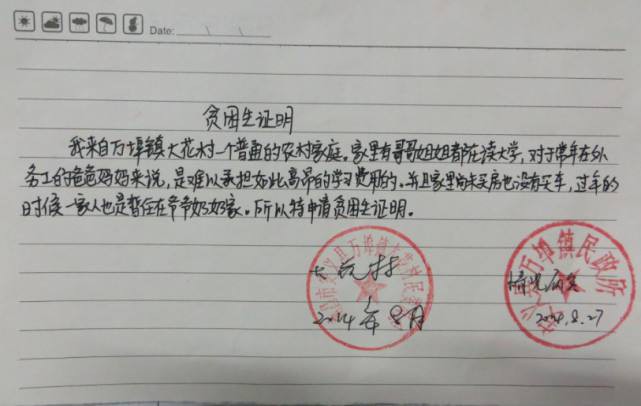 Date:
贫困生证明
我来自万埠镇大花村一个普通的农村家庭。家里有哥哥姐姐都在读大学，对于常年在外
务工的爸爸妈妈来说，是难以承担如此高昂的学习费用的。并且家里尚未买房也没有买车，过年的
时候一家人也是暂住在爷爷奶奶家。所以特申请贫困生证明。
万埠镇民政府
2014年8月
2014.8.27